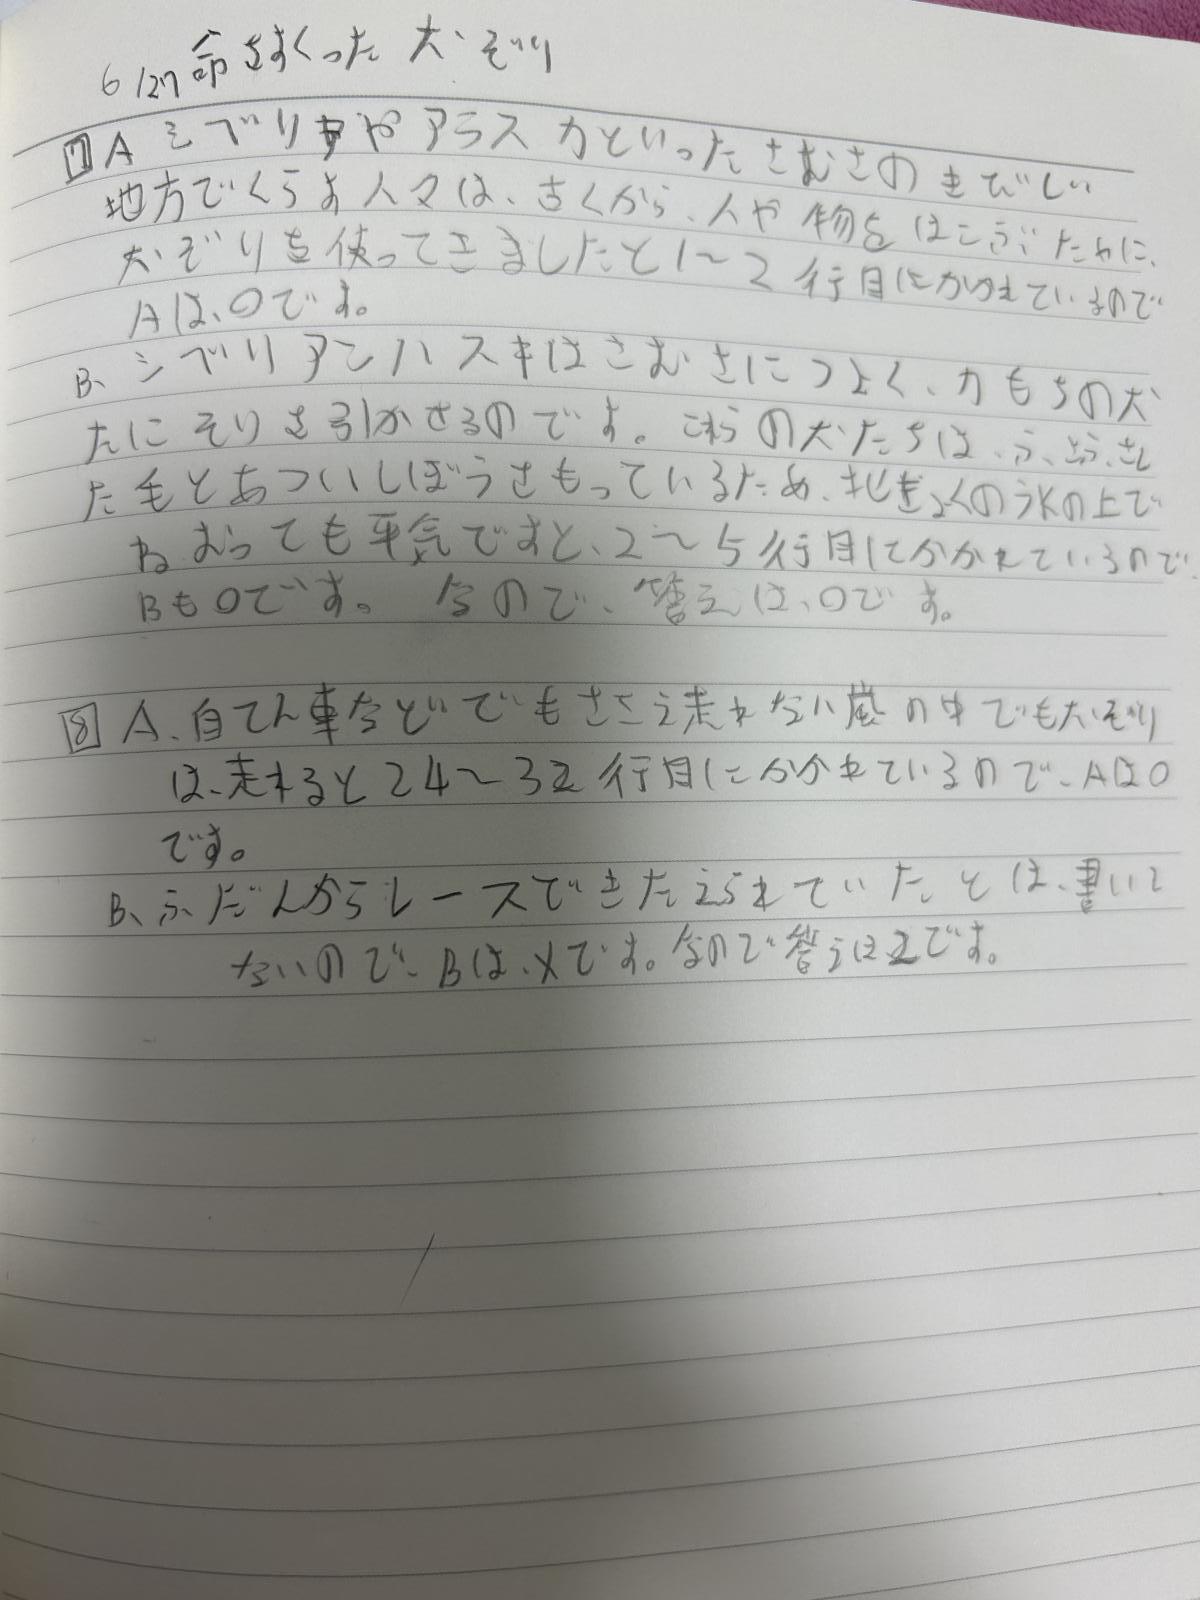 6/27 命をすくった犬ぞり
7 A シベリヤやアラスカといったさむさのきびしい
地方でくらす人々は、古くから、人や物をはこぶために、
犬ぞりを使ってきましたと1〜2行目にかかれているので
Aは、○です。
B、シベリアンハスキはさむさにつよく、力もちの犬
たにそりを引かせるのです。これらの犬たちは、ふさふさし
た毛とあついしぼうをもっているため、北きょくの氷の上で
ねむっても平気ですと、2〜5行目にかかれているので、
Bも○です。なので、答えは、○です。
8 A、自てん車などでもさえ走れない嵐の中でも犬ぞり
は、走れると24〜32行目にかかれているので、Aは○
です。
B、ふだんからレースできたえられていたとは、書いて
ないので、Bは、×です。なので答えは2です。